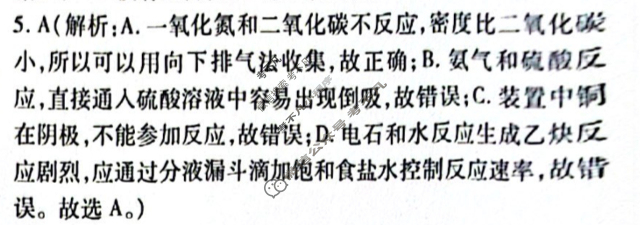 5. A(解析:A. 一氧化氮和二氧化碳不反应,密度比二氧化碳
小,所以可以用向下排气法收集,故正确;B. 氨气和硫酸反
应,直接通入硫酸溶液中容易出现倒吸,故错误;C. 装置中铜
在阴极,不能参加反应,故错误;D. 电石和水反应生成乙炔反
应剧烈,应通过分液漏斗滴加饱和食盐水控制反应速率,故错
误。故选 A。)